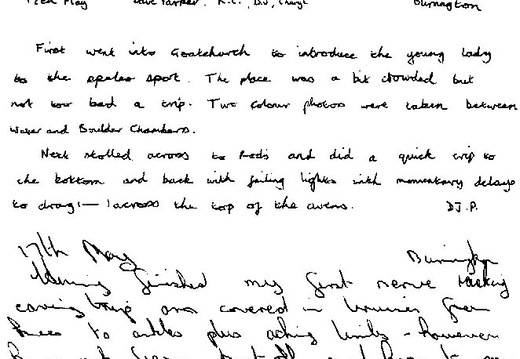 12th May Dave Parker, R.C., D.J., Cheryl Burrington
First went into Goatchurch to introduce the young lady
to the speleo sport. The place was a bit crowded but
not too bad a trip. Two colour photos were taken between
Water and Boulder Chambers.
Next strolled across to Rods and did a quick trip to
the bottom and back with failing lights with momentary delays
to drag Cheryl across the top of the avens. D.J.P.
17th May Burrington
Having finished my first nerve racking
caving trip and covered in bruises from
knees to ankles plus aching limbs - however